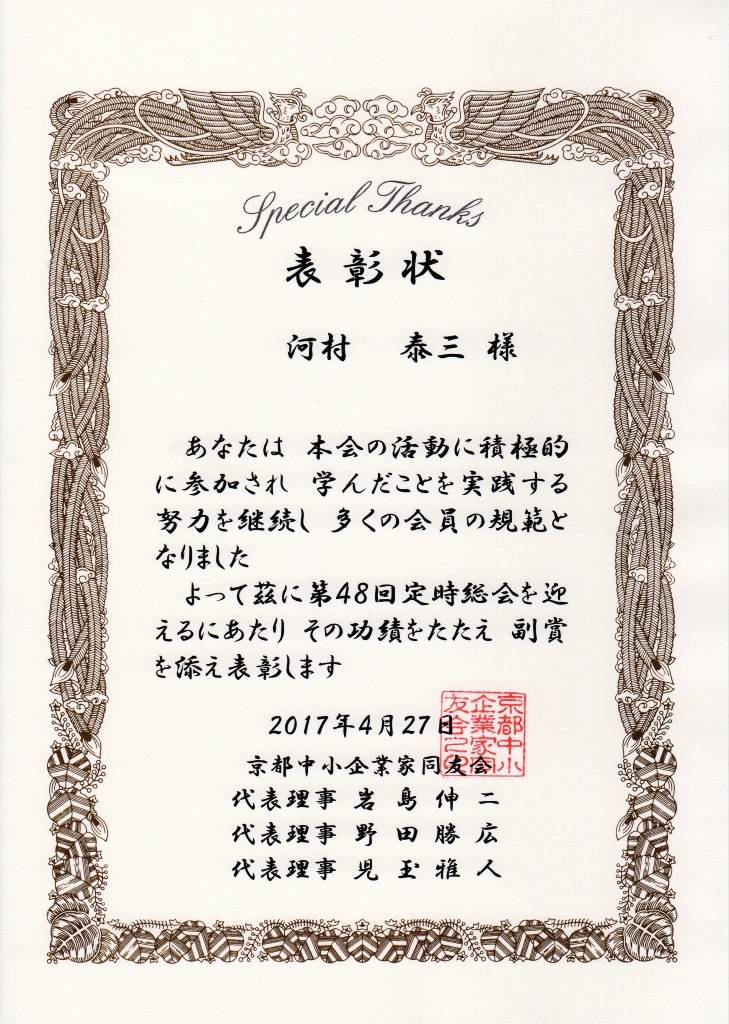 Special Thanks
表彰状
河村 泰三 様
あなたは 本会の活動に積極的
に参加され 学んだことを実践する
努力を継続し 多くの会員の規範と
なりました
よって茲に第48回定時総会を迎
えるにあたり その功績をたたえ 副賞
を添え表彰します
2017年4月27日
京都中小企業家同友会
代表理事 岩島伸二
代表理事 野田勝広
代表理事 児玉雅人
京都中小
企業家同
友会之印